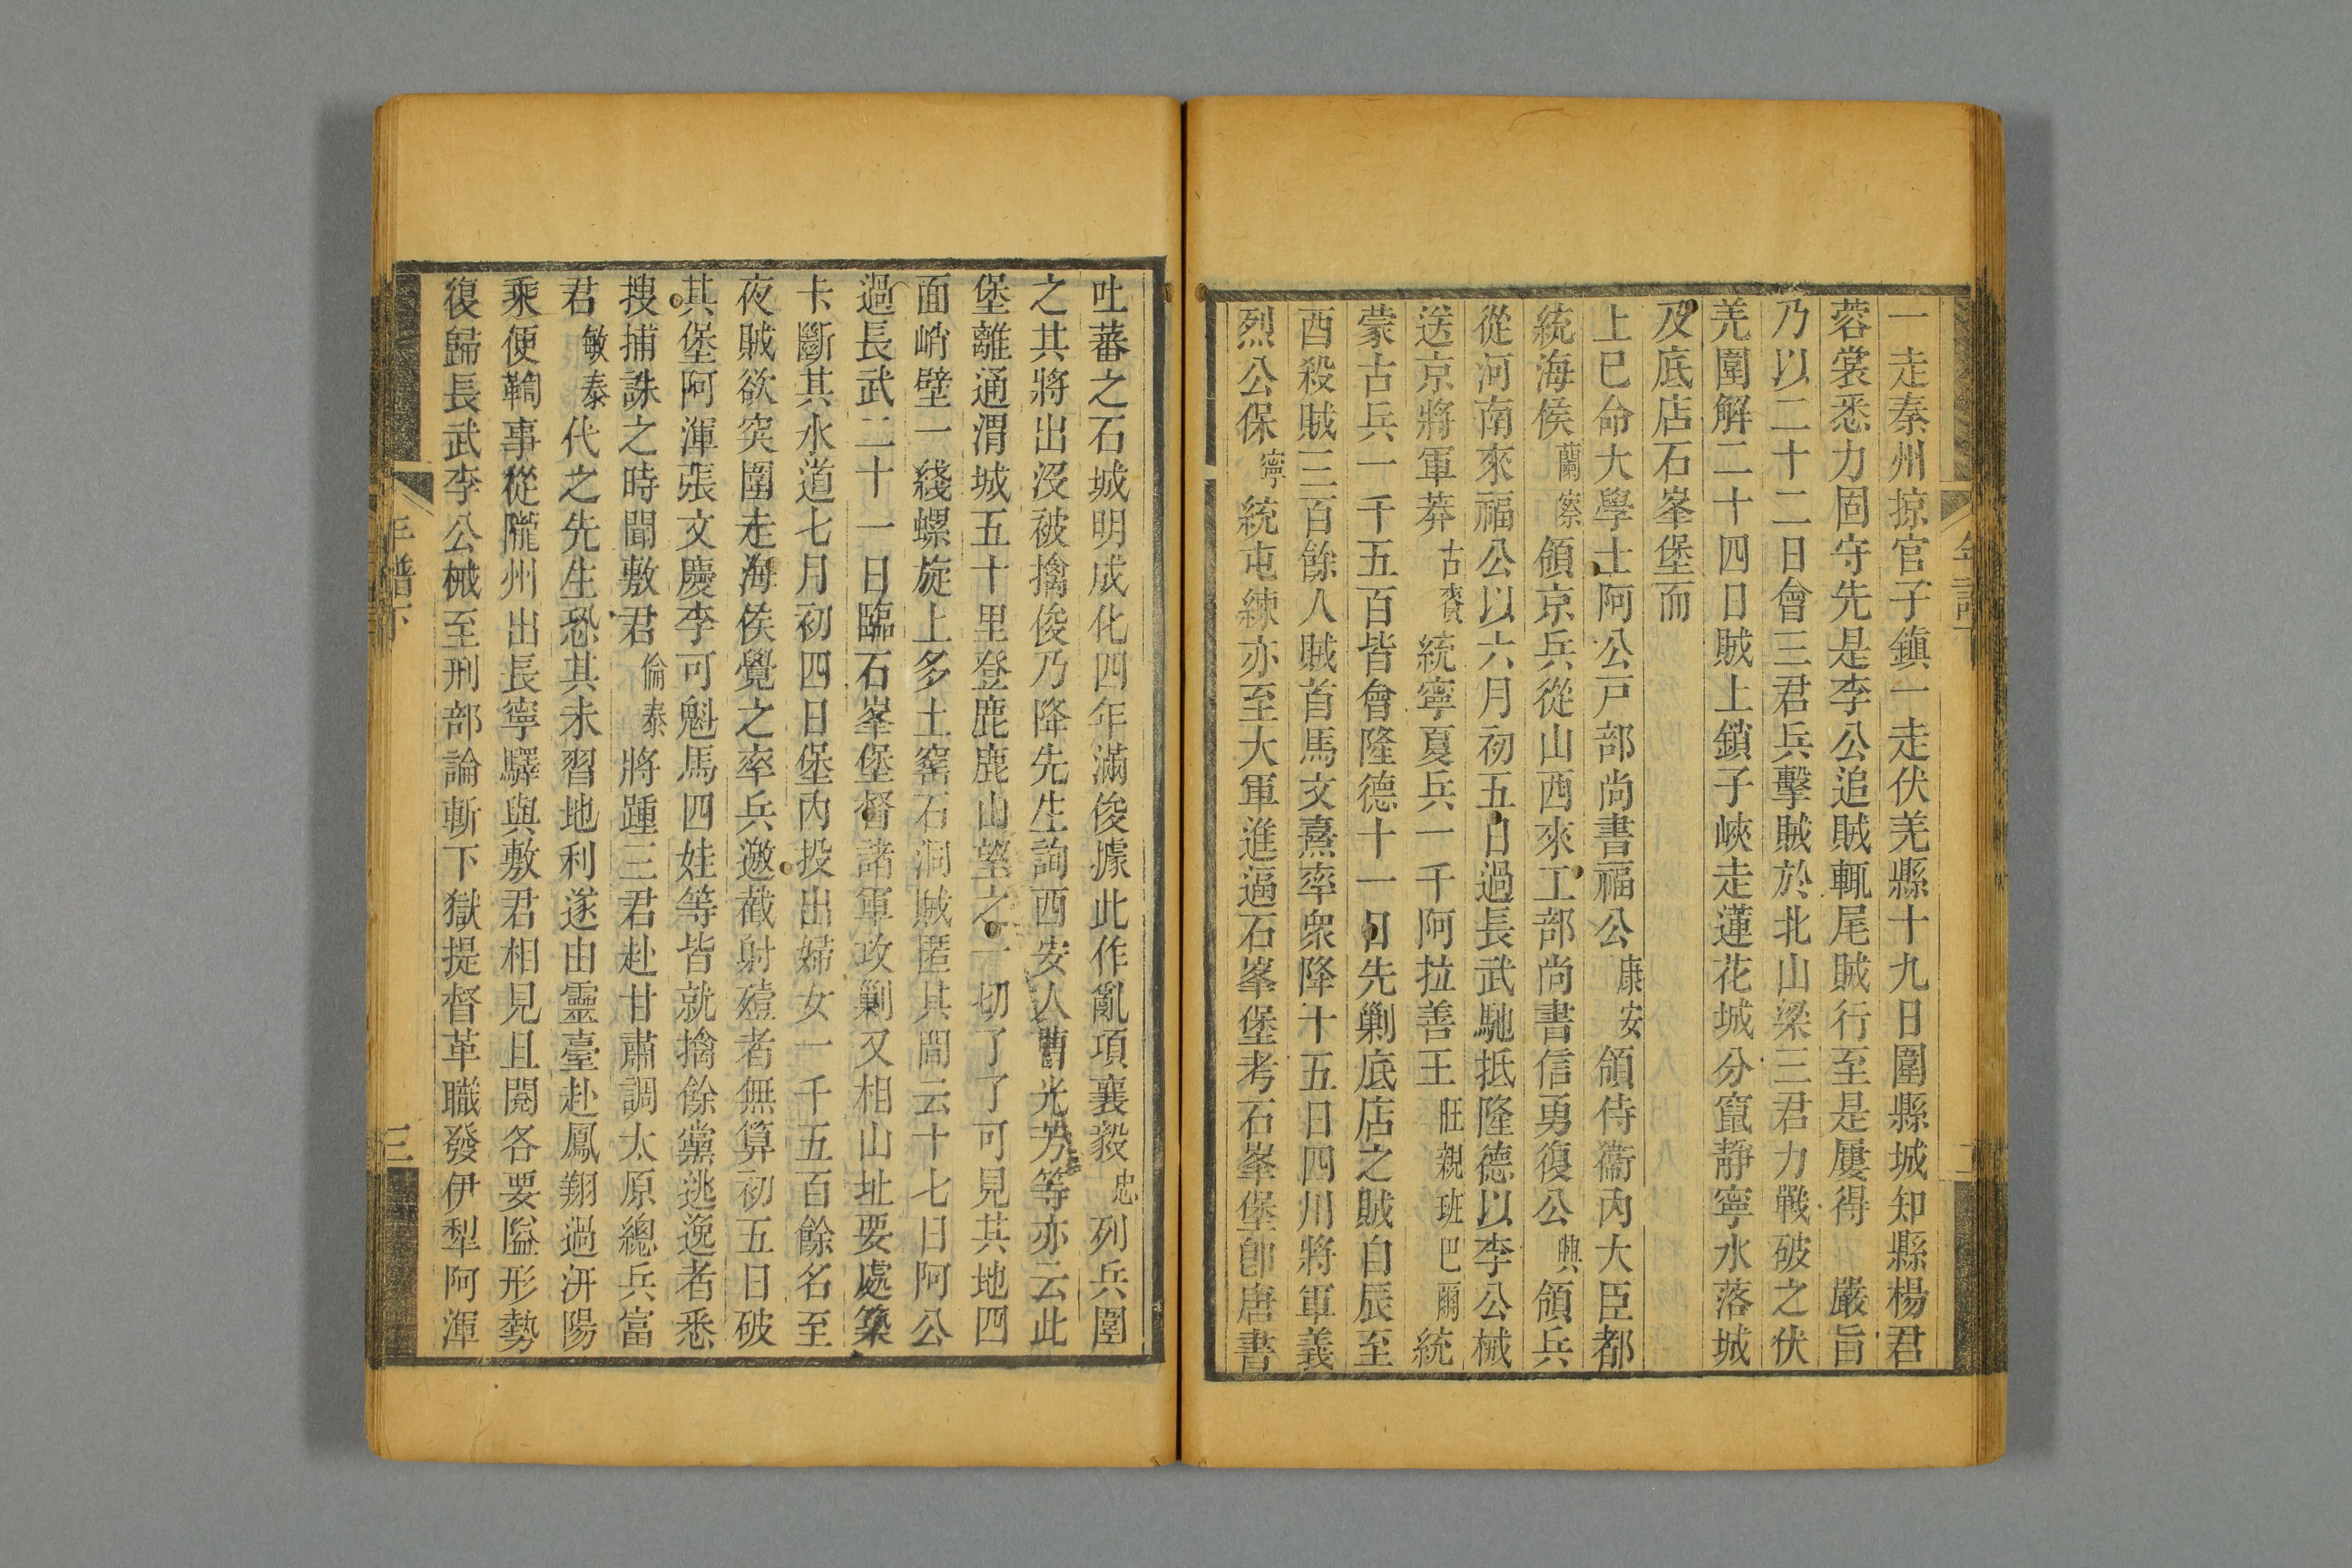 一走秦州掠官子鎮一走伏羌縣十九日圍縣城知縣楊君
蓉裳悉力固守先是李公追賊輒尾賊行至是屢得 嚴旨
乃以二十二日會三君兵擊賊於北山梁三君力戰破之伏
羌圍解二十四日賊上鎖子峽走蓮花城分竄靜寧水落城
及底店石峯堡而
上巳命大學士阿公戸部尚書福公康安領侍衞內大臣都
統海侯蘭察領京兵從山西來工部尚書信勇復公興領兵
從河南來福公以六月初五日過長武馳抵隆德以李公械
送京將軍莽古賚統寧夏兵一千阿拉善王旺親班巴爾統
蒙古兵一千五百皆會隆德十一日先剿底店之賊自辰至
酉殺賊三百餘人賊首馬文熹率衆降十五日四川將軍義
烈公保寧統屯練亦至大軍進逼石峯堡考石峯堡卽唐書
吐蕃之石城明成化四年滿俊據此作亂項襄毅忠列兵圍
之其將出沒被擒俊乃降先生詢西安人曹光芳等亦云此
堡離通渭城五十里登鹿鹿山望之一切了了可見其地四
面峭壁一綫螺旋上多土窰石洞賊匿其間云十七日阿公
過長武二十一日臨石峯堡督諸軍攻剿又相山址要處築
卡斷其水道七月初四日堡內投出婦女一千五百餘名至
夜賊欲突圍走海侯覺之率兵邀截射殪者無算初五日破
其堡阿渾張文慶李可魁馬四娃等皆就擒餘黨逃逸者悉
搜捕誅之時聞敷君倫泰將踵三君赴甘肅調太原總兵富
君敏泰代之先生恐其未習地利遂由靈臺赴鳳翔過汧陽
乘便鞫事從隴州出長寧驛與敷君相見且閱各要隘形勢
復歸長武李公械至刑部論斬下獄提督革職發伊犁阿渾
年譜下
三